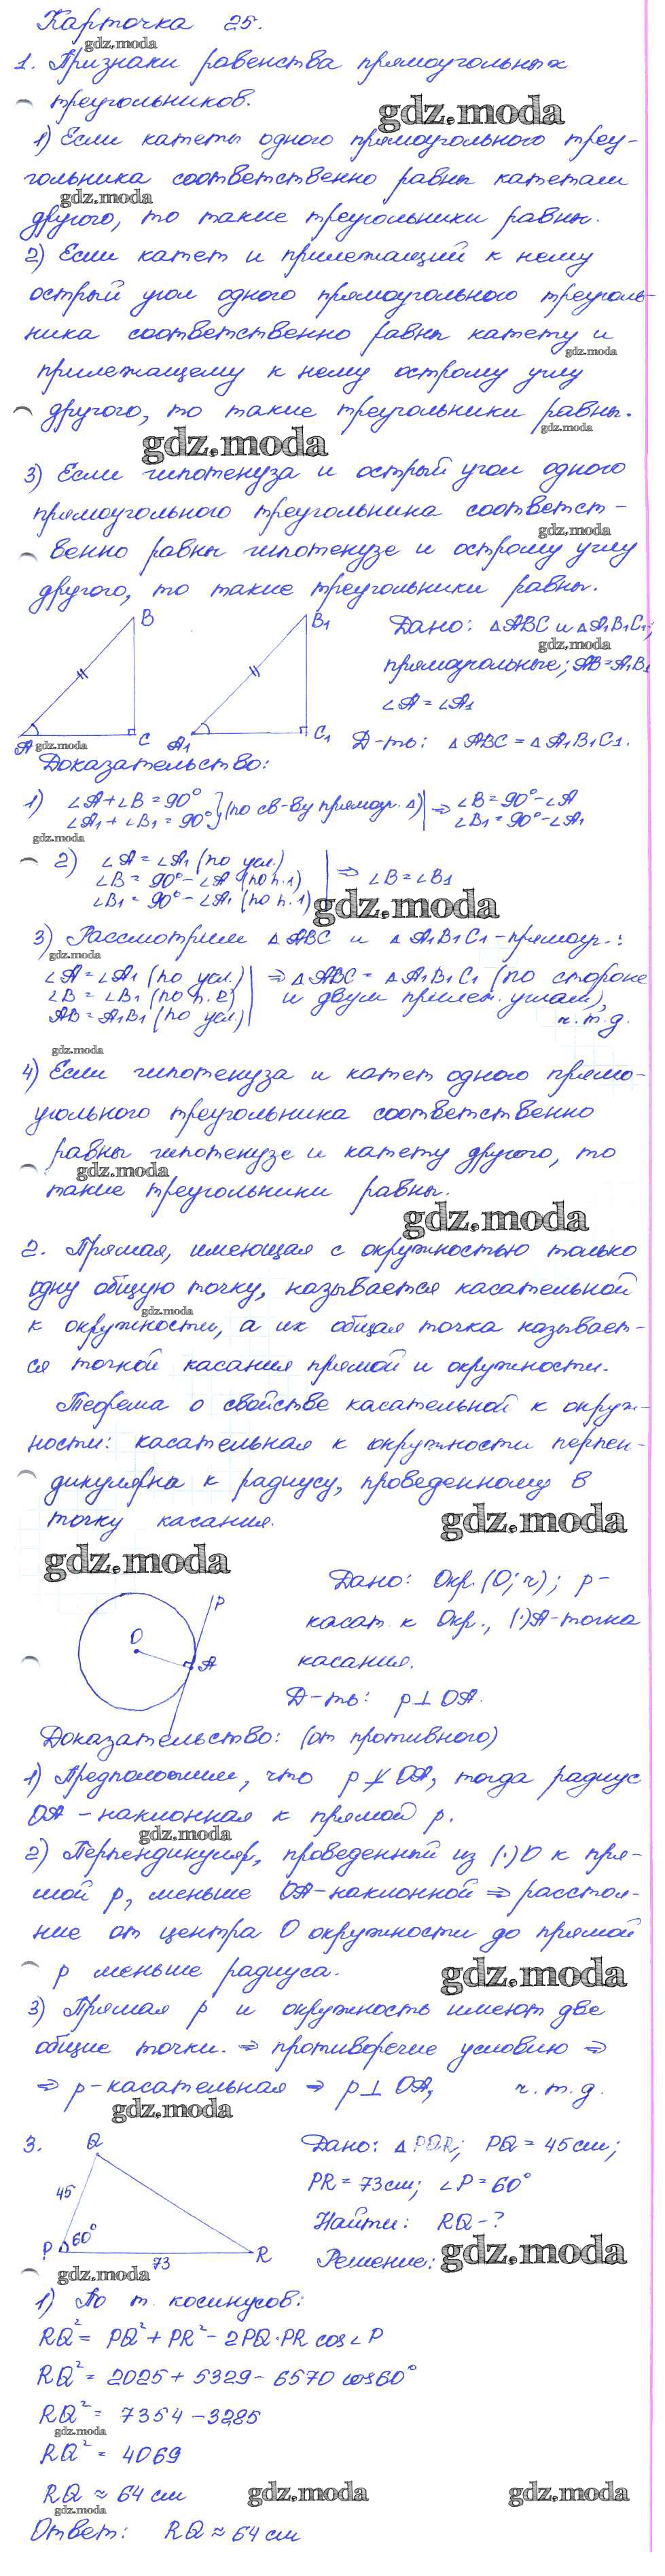 Карточка 25.
gdz.moda
1. Признаки равенства прямоугольных
треугольников.
gdz.moda
1) Если катеты одного прямоугольного треу-
гольника соответственно равны катетам
gdz.moda
другого, то такие треугольники равны.
2) Если катет и прилежащий к нему
острый угол одного прямоугольного треуголь-
ника соответственно равны катету и
gdz.moda
прилежащему к нему острому углу
другого, то такие треугольники равны.
gdz.moda
gdz.moda
3) Если гипотенуза и острый угол одного
прямоугольного треугольника соответст-
gdz.moda
венно равны гипотенузе и острому углу
другого, то такие треугольники равны.
B B₁ Дано: △ABC и △A₁B₁C₁;
gdz.moda
прямоугольные; AB=A₁B₁
∠A=∠A₁
A gdz.moda C A₁ C₁ Д-ть: △ABC=△A₁B₁C₁.
Доказательство:
1) ∠A+∠B=90° } (по св-ву прямоуг. △) | ⇒ ∠B=90°-∠A
∠A₁+∠B₁=90° ∠B₁=90°-∠A₁
gdz.moda
2) ∠A=∠A₁ (по усл.)
∠B=90°-∠A (по п.1) | ⇒ ∠B=∠B₁
∠B₁=90°-∠A₁ (по п.1)
gdz.moda
3) Рассмотрим △ABC и △A₁B₁C₁-прямоуг.:
gdz.moda
∠A=∠A₁ (по усл.) | ⇒ △ABC=△A₁B₁C₁ (по стороне
∠B=∠B₁ (по п.2) и двум прилеж. углам),
AB=A₁B₁ (по усл.) ч.т.д.
gdz.moda
4) Если гипотенуза и катет одного прямо-
угольного треугольника соответственно
равны гипотенузе и катету другого, то
gdz.moda
такие треугольники равны.
gdz.moda
2. Прямая, имеющая с окружностью только
одну общую точку, называется касательной
gdz.moda
к окружности, а их общая точка называет-
ся точкой касания прямой и окружности.
Теорема о свойстве касательной к окруж-
ности: касательная к окружности перпен-
дикулярна к радиусу, проведенному в
точку касания.
gdz.moda
gdz.moda
Дано: Окр.(O;r); p-
P
касат. к Окр., (·)A-точка
O
A касания.
Д-ть: p⊥OA.
Доказательство: (от противного)
1) Предположим, что p⊥̸OA, тогда радиус
OA-наклонная к прямой p.
gdz.moda
2) Перпендикуляр, проведенный из (·)O к пря-
мой p, меньше OA-наклонной ⇒ расстоя-
ние от центра O окружности до прямой
p меньше радиуса.
gdz.moda
3) Прямая p и окружность имеют две
общие точки. ⇒ противоречие условию ⇒
⇒ p-касательная ⇒ p⊥OA, ч.т.д.
gdz.moda
3. Q Дано: △PQR; PQ=45см;
45 PR=73см; ∠P=60°
Найти: RQ-?
P 60° R
73 Решение:
gdz.moda
gdz.moda
1) По т. косинусов:
RQ²=PQ²+PR²-2PQ·PR cos∠P
RQ²=2025+5329-6570 cos60°
RQ²=7354-3285
gdz.moda
RQ²=4069
RQ≈64 см
gdz.moda gdz.moda
gdz.moda
Ответ: RQ≈64 см